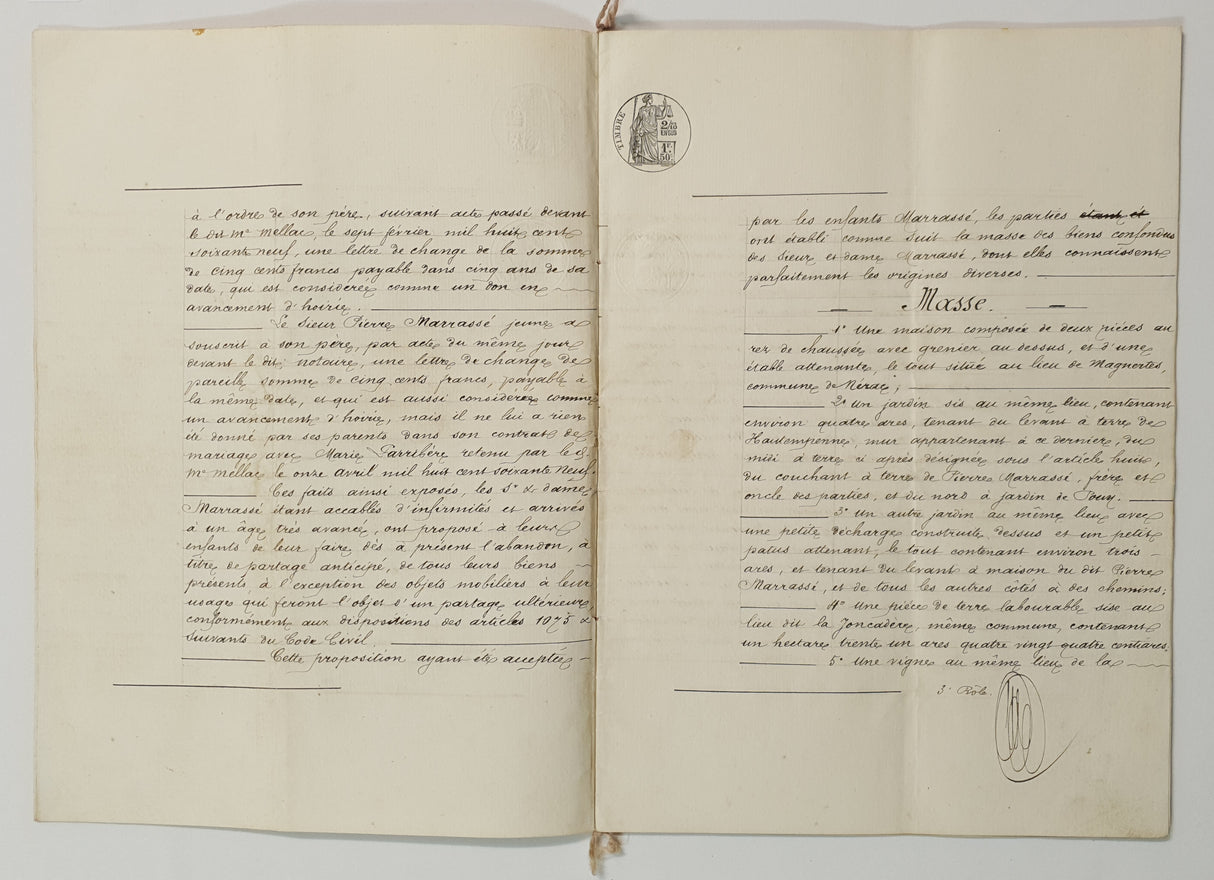 à l'ordre de son père, suivant acte passé devant
le dit Me Mellac, le sept février mil huit cent
soixante neuf, une lettre de change de la somme
de cinq cents francs payable dans cinq ans de sa
date, qui est considérée comme un don en
avancement d'hoirie.
Le Sieur Pierre Marrassé jeune a
souscrit à son père, par acte du même jour
devant le dit notaire, une lettre de change de
pareille somme de cinq cents francs, payable à
la même date, et qui est aussi considérée comme
un avancement d'hoirie, mais il ne lui a rien
été donné par ses parents dans son contrat de
mariage avec Marie Larribère retenu par le d.
Me Mellac le onze avril mil huit cent soixante neuf.
Ces faits ainsi exposés, les Sr & dame
Marrassé étant accablés d'infirmités et arrivés
à un âge très avancé, ont proposé à leurs
enfants de leur faire dès à présent l'abandon, à
titre de partage anticipé, de tous leurs biens
présents à l'exception des objets mobiliers à leur
usage qui feront l'objet d'un partage ultérieur,
conformément aux dispositions des articles 1075 &
suivants du Code Civil.
Cette proposition ayant été acceptée
TIMBRE
2/10
EN SUS
1F.
50c.
par les enfants Marrassé, les parties étant et
ont établi comme suit la masse des biens confondus
des Sieur et dame Marrassé, dont elles connaissent
parfaitement les origines diverses.
Masse.
1° Une maison composée de deux pièces au
rez de chaussée avec grenier au dessus, et d'une
étable attenante, le tout situé au lieu de Magnortes,
commune de Nérac;
2° Un jardin sis au même lieu, contenant
environ quatre ares, tenant du levant à terre de
Hautempenne, mur appartenant à ce dernier, du
midi à terre ci après désignée sous l'article huit,
du couchant à terre de Pierre Marrassé, frère et
oncle des parties, et du nord à jardin de Pouy.
3° Un autre jardin au même lieu avec
une petite décharge construite dessus et un petit
patus attenant, le tout contenant environ trois
ares, et tenant du levant à maison du dit Pierre
Marrassé, et de tous les autres côtés à des chemins;
4° Une pièce de terre labourable sise au
lieu dit la Joncadère, même commune, contenant
un hectare trente un ares quatre vingt quatre centiares.
5° Une vigne au même lieu de la
3e Rôle.